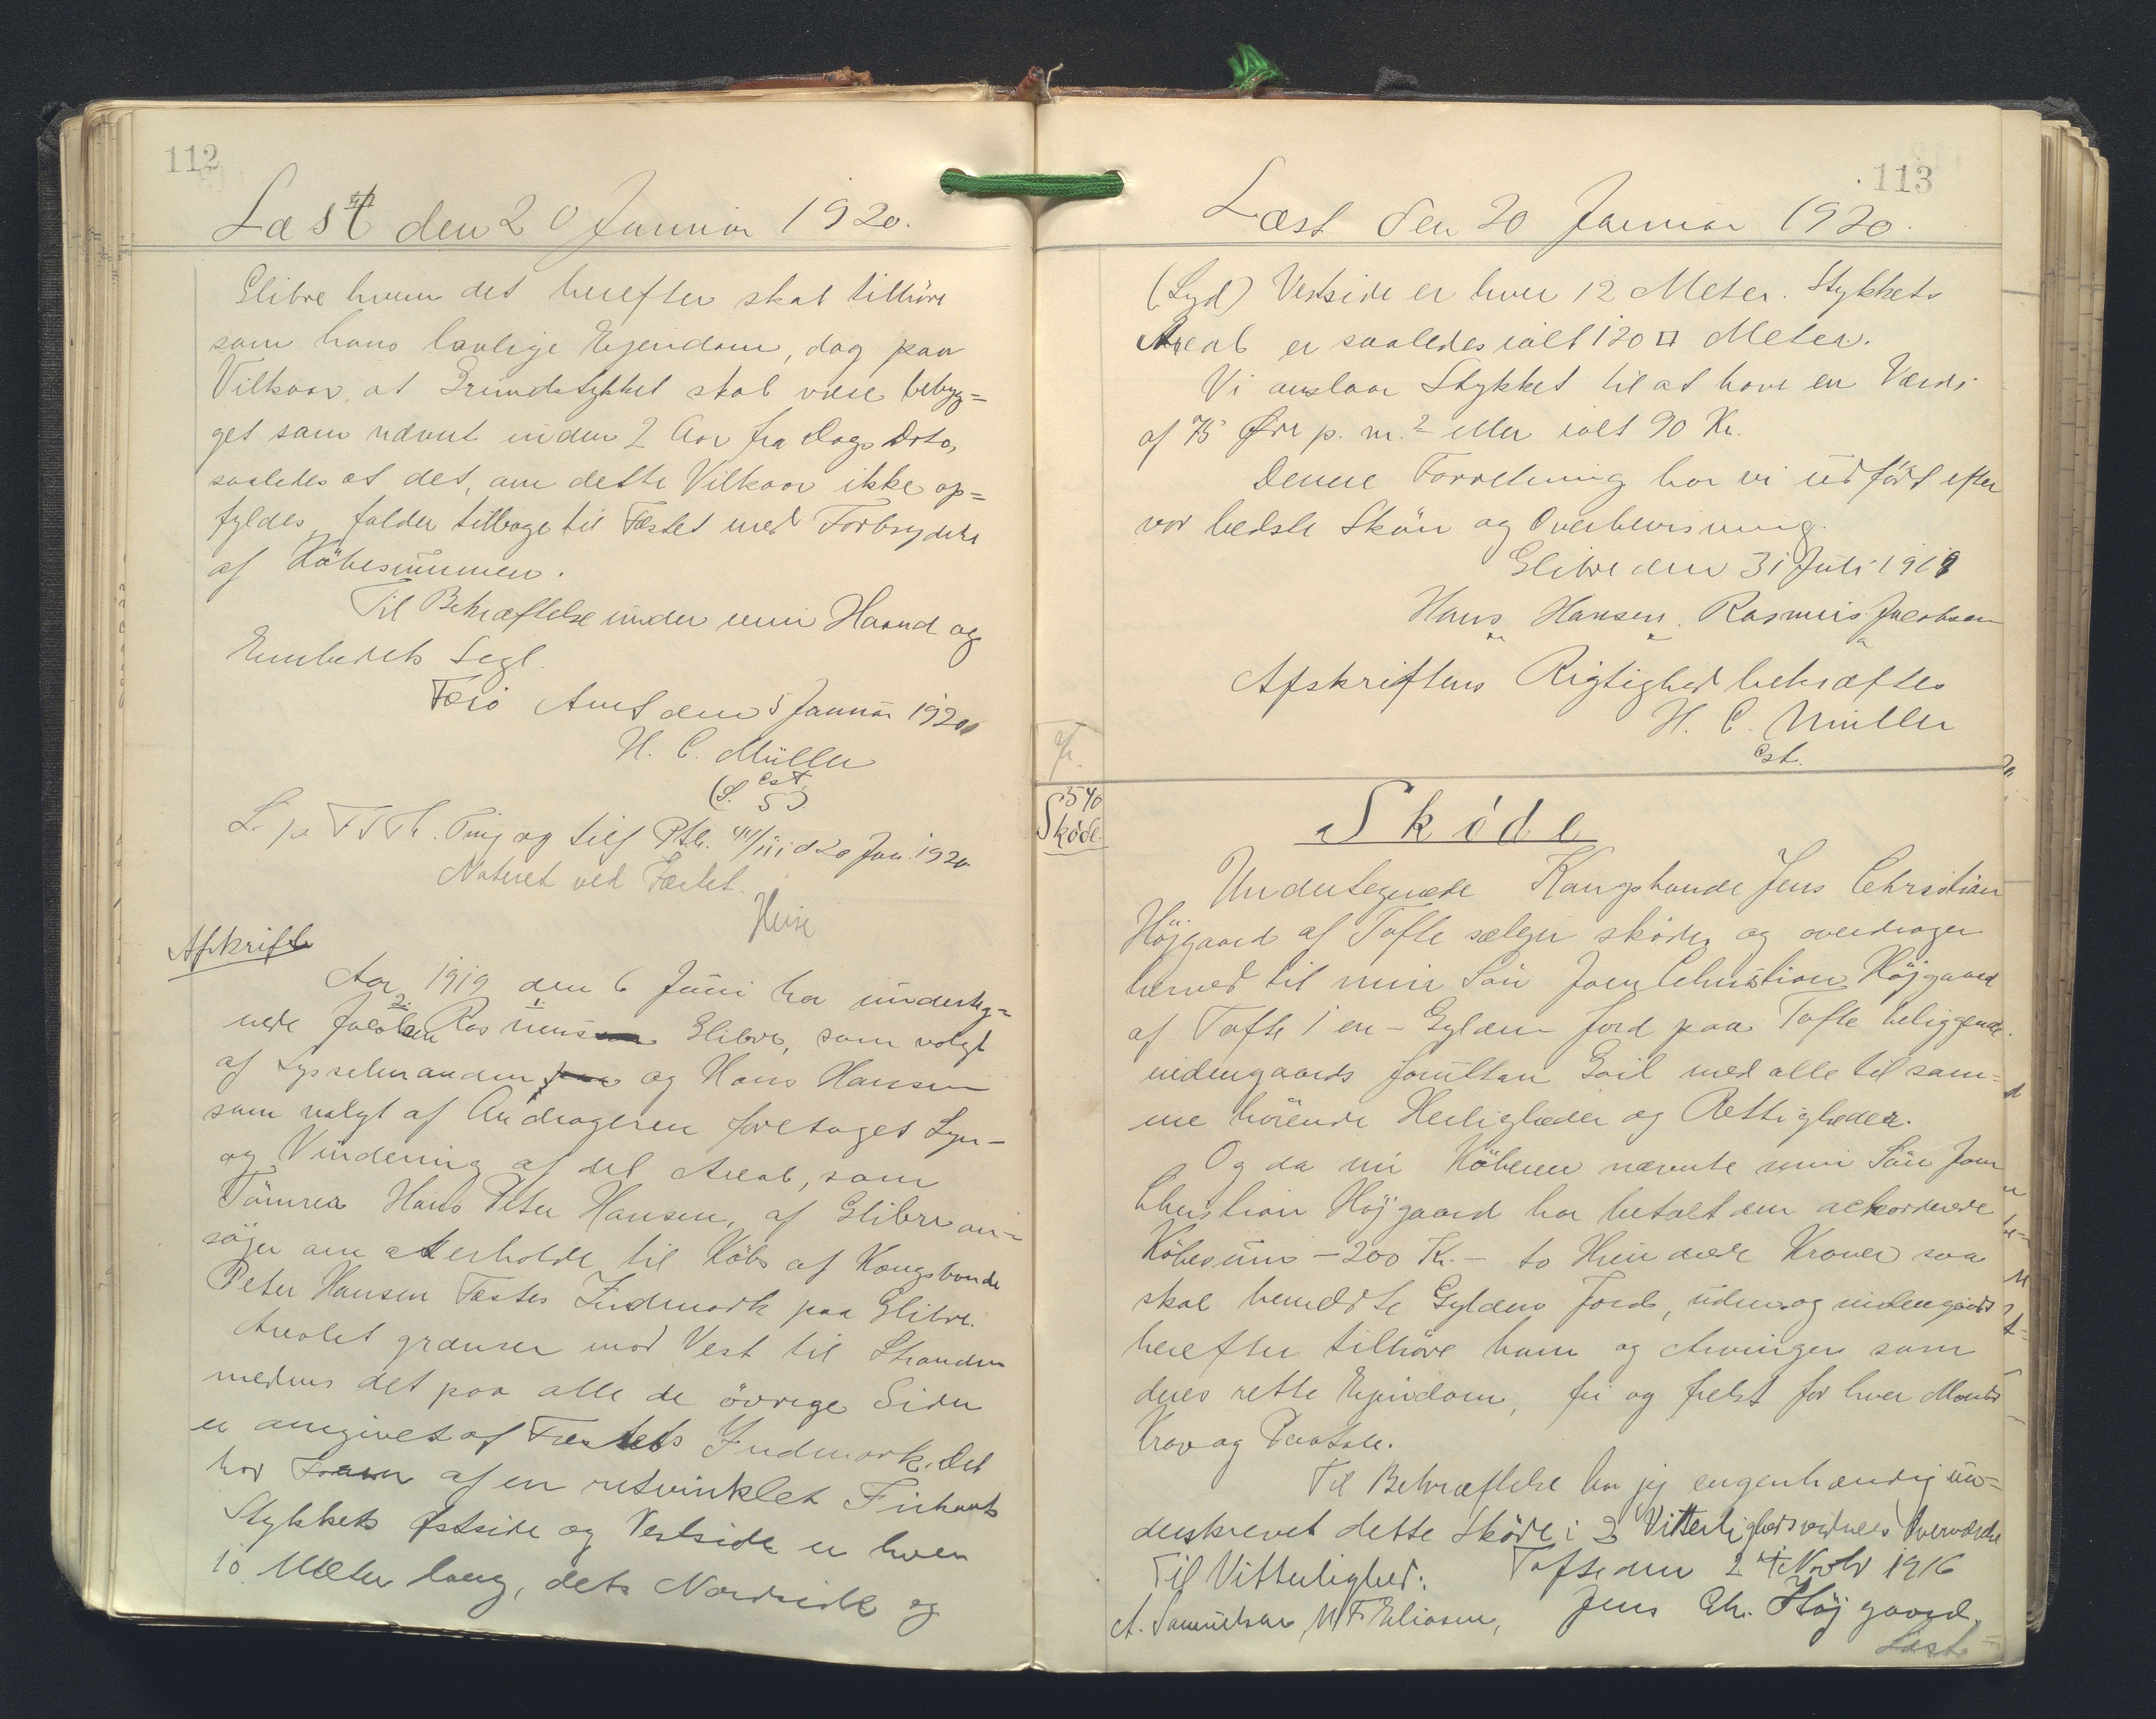 112
Læst den 20 Januar 1920.
Glibre hvem det herefter skal tilhöre
som hans lovlige Ejendom, dog paa
Vilkaar, at Grundstykket skal være bebyg=
get som nævnt inden 2 Aar fra Dags Dato,
saaledes at det, om dette Vilkaar ikke op=
fyldes, falder tilbage til Fæstet med Forbrydelse
af Köbesummen.
Til Bekræftelse under min Haand og
Embedets Segl.
Færö Amt den 5 Januar 1920
H. C. Müller
cst.
(L. S.)
L. p. F S Th. Ting og tilf Ptk. d 20 Jan. 1920
Noteret ved Fæstet.
Afskrift
Aar 1919 den 6 Juni har underteg=
nede Jacobsen Rasmus Glibre, som valgt
af Sysselmanden og Hans Hansen
som valgt af Andrageren foretaget Syn-
og Vurdering af det Areal, som
Tömrer Hans Peter Hansen, af Glibre an=
söger om at erholde til Köbs af Kongsbonde
Peter Hansen Fæstes Indmark paa Glibre.
Arealet grænser mod Vest til Stranden
medens det paa alle de övrige Sider
er omgivet af Fæstets Indmark. Det
har Form af en retvinklet Firkant
Stykkets Östside og Vestside er hver
10 Meter lang, dets Nordside og
113
Læst den 20 Januar 1920.
(Syd) Vestside er hver 12 Meter. Stykkets
Areal er saaledes ialt 120 □ Meter.
Vi anslaar Stykket til at have en Værdi
af 75 Øre p. m.2 eller ialt 90 Kr.
Denne Forretning har vi udfört efter
vor bedste Skön og Overbevisning.
Glibre den 31 Juli 1919
Hans Hansen. Rasmus Jacobsen
Afskriftens Rigtighed bekræftes
H. C. Müller
cst.
540
Sköde.
Sköde
Undertegnede Kongsbonde Jens Christian
Höjgaard af Tofte sælger sköder og overdrager
herved til min Sön Joen Christian Höjgaard
af Tofte 1 en - Gylden Jord paa Tofte beliggende
indengaards med alle til sam=
me hörende Herligheder og Rettigheder.
Og da nu Köberen nævnte min Sön Joen
Christian Höjgaard har betalt den accorderede
Köbesum - 200 Kr. - to Hundrede Kroner saa
skal bemeldte Gylden Jord, uden og indengaards
herefter tilhöre ham og Arvinger som
deres rette Ejendom, fri og frelst for hver Mands
Krav og Paatale.
Til Bekræftelse har jeg egenhændig un=
derskrevet dette Sköde i 2 Vitterlighedsvidners Overværelse
Tofte den 24 Novbr 1916
Til Vitterlighed:
Jens Chr. Höjgaard.
A. Samuelsen, M F Eliasen,
Læst